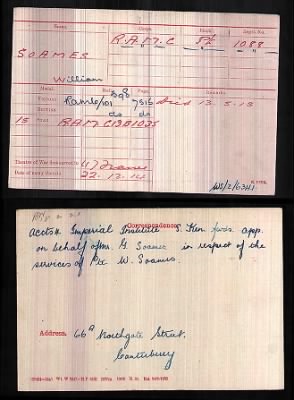 Name.
Corps.
Rank.
Regtl. No.
SOAMES
R.A.M.C
Pte
1088
William
Medal.
Roll.
Page.
Victory
RAMC/101
B98
7515
Died 13.5.15
British
do
do
15 Star
RAMC/3B
1025
Theatre of War first served in
(1) France
Date of entry therein
22.12.14
K 1380.
Correspondence.
Imperial Institute S. Ken fwds. app.
on behalf of Mr. G Soames in respect of the
services of Pte W. Soames.
Address.
66a Northgate Street,
Canterbury